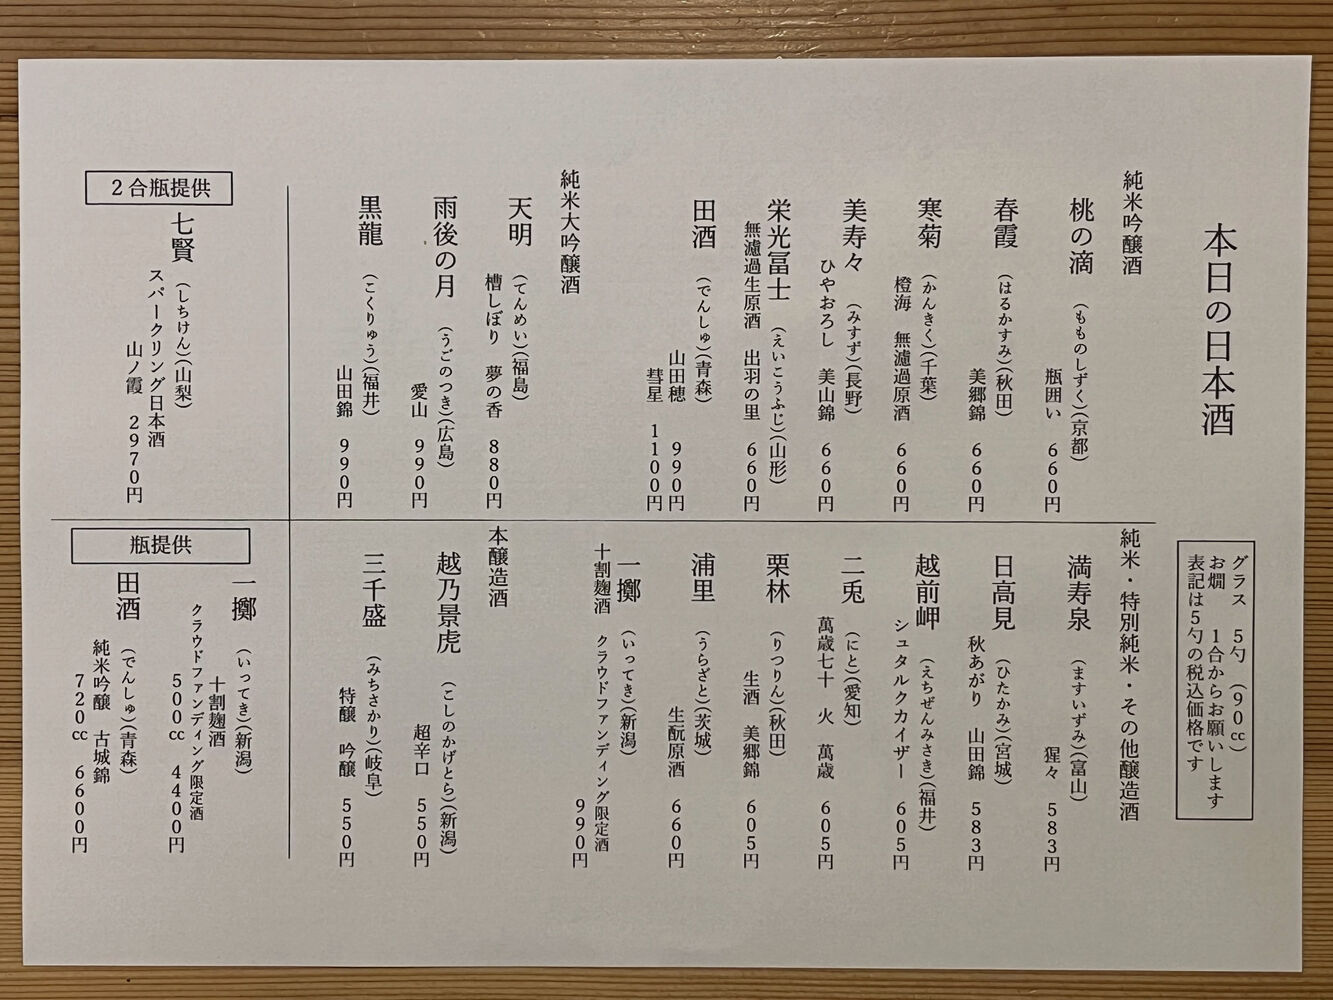 本日の日本酒
グラス　5勺　(90cc)
お燗　1合からお願いします
表記は5勺の税込価格です
純米吟醸酒
桃の滴　(もものしずく)(京都)
瓶囲い　660円
春霞　(はるかすみ)(秋田)
美郷錦　660円
寒菊　(かんきく)(千葉)
橙海　無濾過原酒　660円
美寿々　(みすず)(長野)
ひやおろし　美山錦　660円
栄光冨士　(えいこうふじ)(山形)
無濾過生原酒　出羽の里　660円
田酒　(でんしゅ)(青森)
山田穂　990円
彗星　1100円
純米大吟醸酒
天明　(てんめい)(福島)
槽しぼり　夢の香　880円
雨後の月　(うごのつき)(広島)
愛山　990円
黒龍　(こくりゅう)(福井)
山田錦　990円
純米・特別純米・その他醸造酒
満寿泉　(ますいずみ)(富山)
猩々　583円
日高見　(ひたかみ)(宮城)
秋あがり　山田錦　583円
越前岬　(えちぜんみさき)(福井)
シュタルクカイザー　605円
二兎　(にと)(愛知)
萬歳七十　火　萬歳　605円
栗林　(りつりん)(秋田)
生酒　美郷錦　605円
浦里　(うらざと)(茨城)
生酛原酒　660円
一擲　(いってき)(新潟)
十割麹酒　クラウドファンディング限定酒
990円
本醸造酒
越乃景虎　(こしのかげとら)(新潟)
超辛口　550円
三千盛　(みちさかり)(岐阜)
特醸　吟醸　550円
2合瓶提供
七賢　(しちけん)(山梨)
スパークリング日本酒
山ノ霞　2970円
瓶提供
一擲　(いってき)(新潟)
十割麹酒
クラウドファンディング限定酒
500cc　4400円
田酒　(でんしゅ)(青森)
純米吟醸　古城錦
720cc　6600円